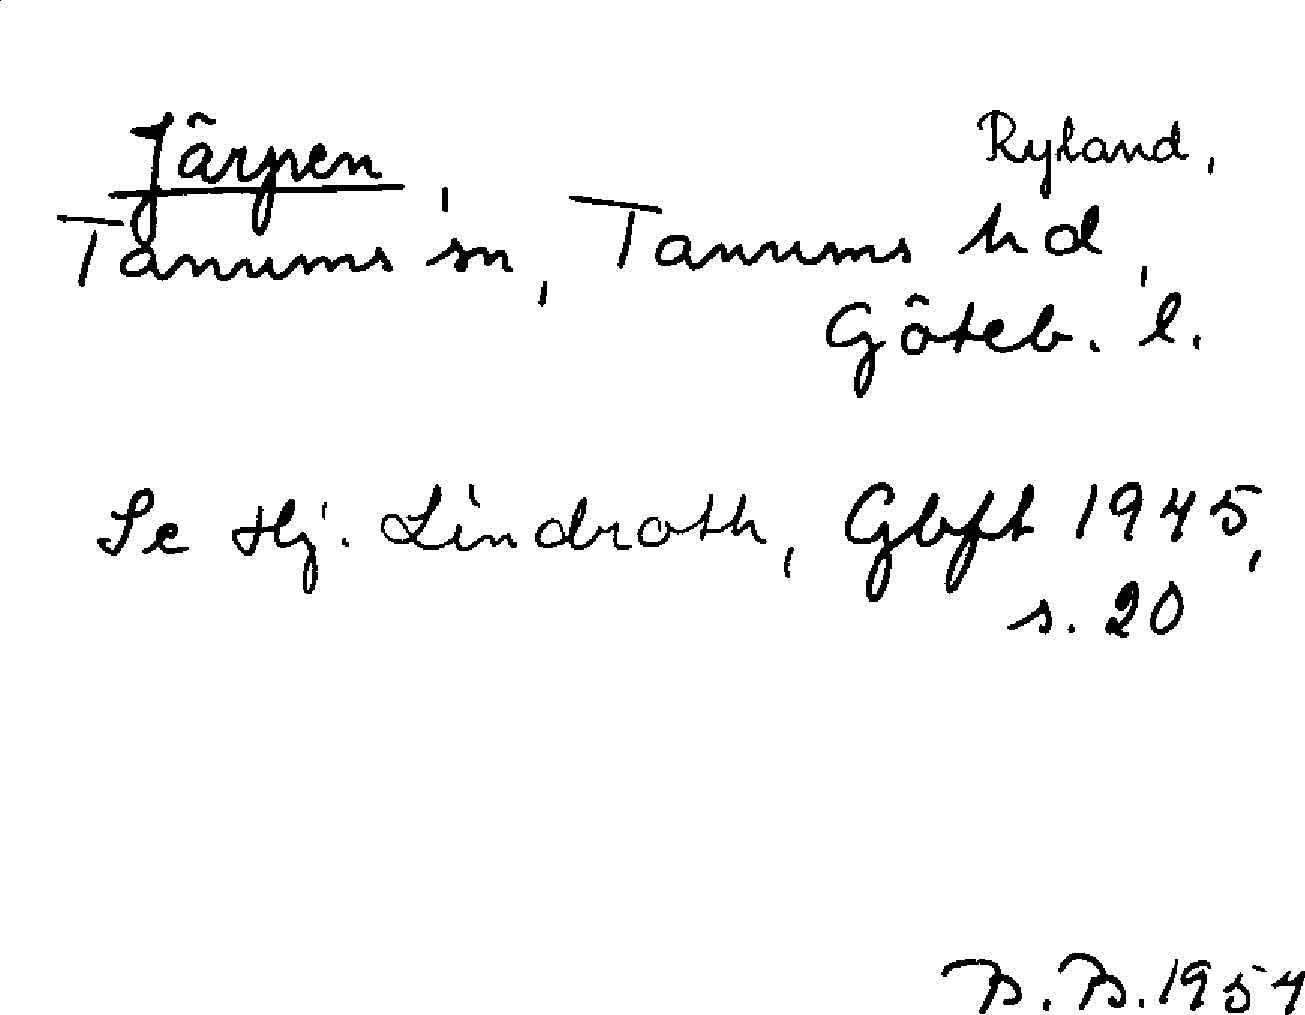 Järpen Ryland,
Tanums sn, Tanums hd,
Göteb. l.
Se Hj. Lindroth, Gbft 1945,
s. 20
B.B. 1954